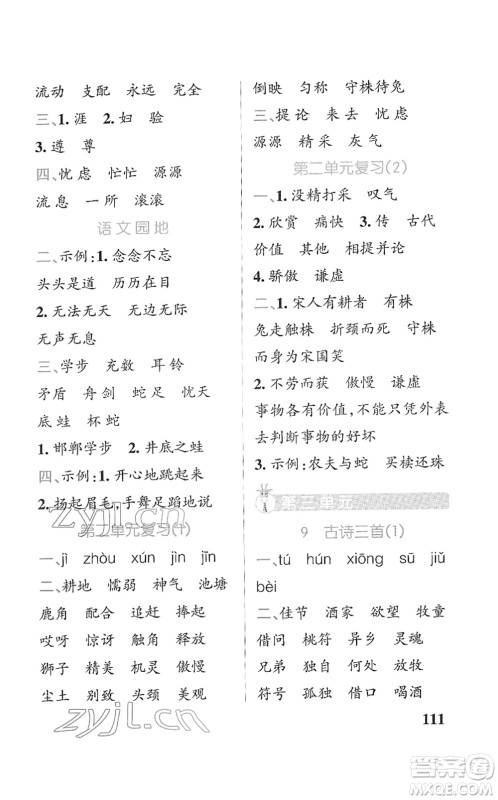 流动 支配 永远 完全
三、1. 涯 2. 妇 验
3. 遵 尊
四、忧虑 忙忙 源源
流息 一所 滚滚
语文园地
二、示例:1. 念念不忘
头头是道 历历在目
2. 无法无天 无边无际
无声无息
三、学步 充数 耳铃
矛盾 舟剑 蛇足 忧天
底蛙 杯蛇
1. 邯郸学步 2. 井底之蛙
四、示例:1. 开心地跳起来
2. 扬起眉毛,手舞足蹈地说
第二单元复习(1)
一、jì zhòu xún jìn jīng
二、耕地 懦弱 神气 池塘
鹿角 配合 追赶 捧起
哎呀 惊讶 触角 释放
狮子 精美 机灵 傲慢
尘土 别致 头颈 美观
倒映 匀称 守株待兔
三、提论 来去 忧虑
源源 精采 灰气
第二单元复习(2)
一、1. 没精打采 叹气
2. 欣赏 痛快 3. 传 古代
价值 其他 相提并论
4. 骄傲 谦虚
二、1. 宋人有耕者 有株
兔走触株 折颈而死 守株
而身为宋国笑
2. 不劳而获 傲慢 谦虚
事物各有价值,不能只凭借用
去判断事物的好坏
3. 示例:农夫与蛇 买椟还珠
第三单元
9 古诗三首(1)
一、tú hún xiōng sū jiǔ
bèi
二、佳节 酒家 欲望 牧童
借问 桃符 异乡 灵魂
兄弟 独自 何处 放牧
符号 孤独 借口 喝酒
111
zyjl.cn
zyjl.cn
答案圈
MXQE.COM